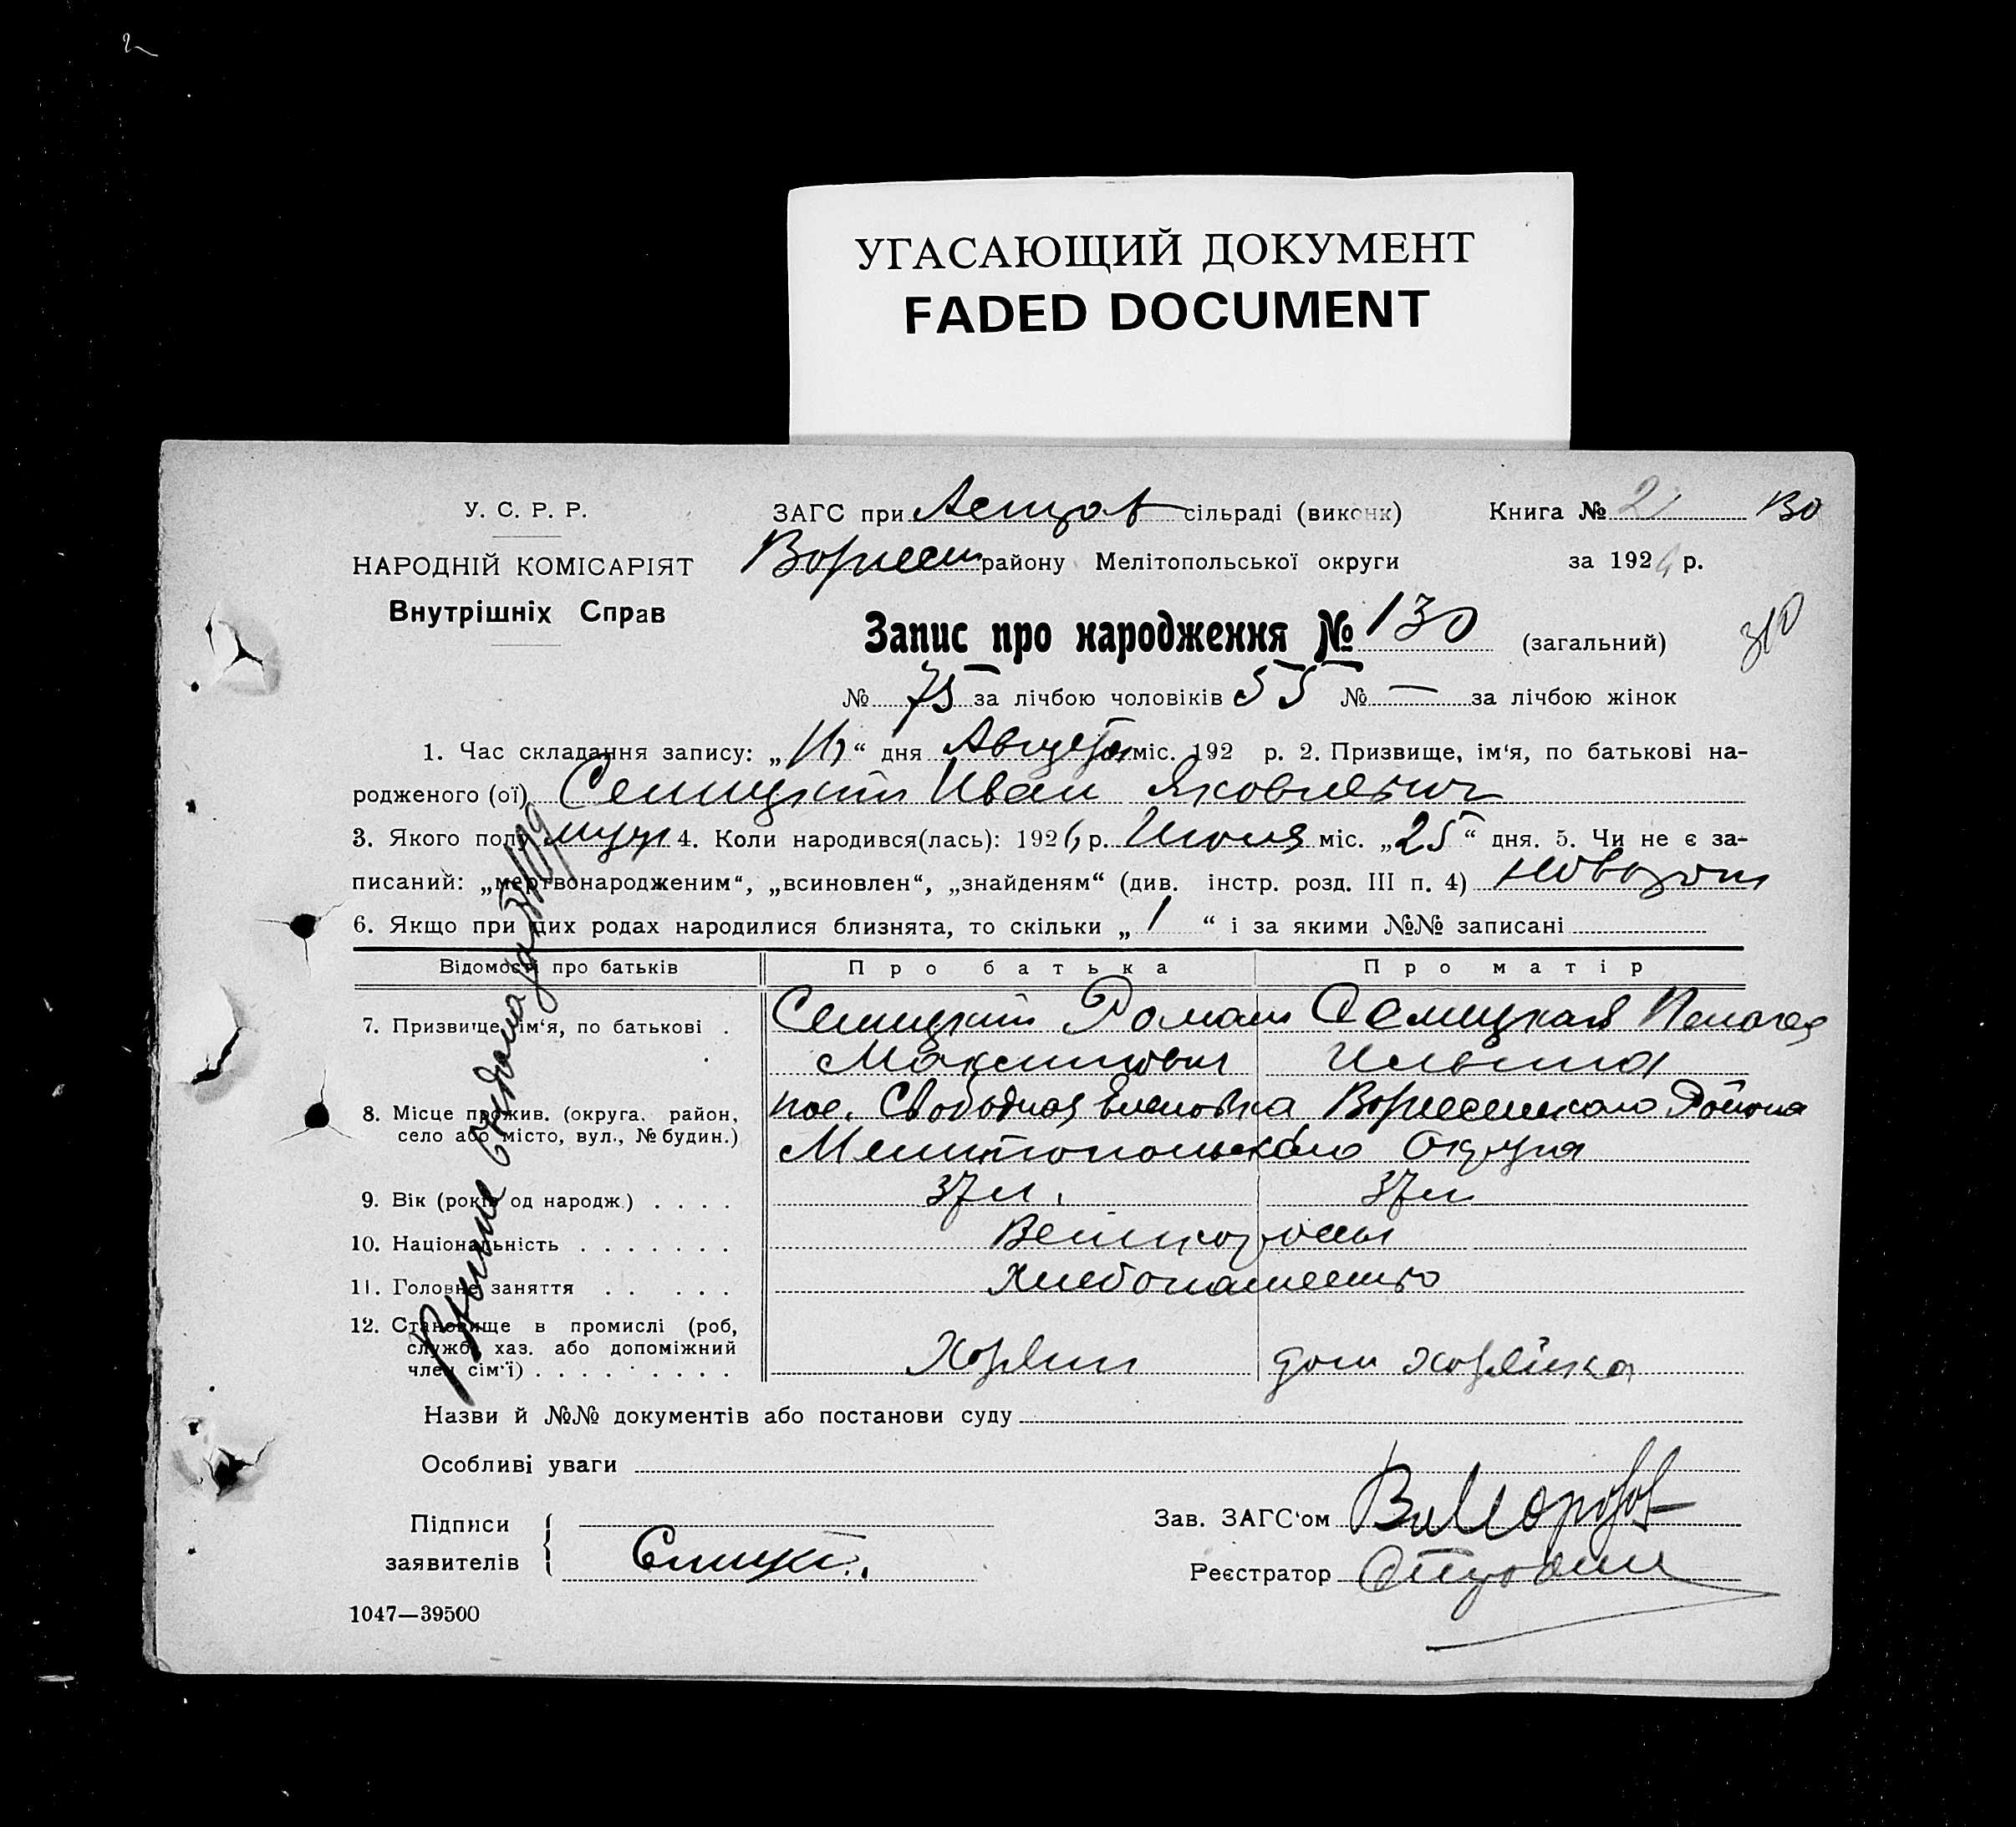 УГАСАЮЩИЙ ДОКУМЕНТ
FADED DOCUMENT
У. С. Р. Р.
НАРОДНІЙ КОМІСАРІЯТ
Внутрішніх Справ
ЗАГС при сільраді (виконк)
району Мелітопольської округи
Книга № 2 130
за 192 р.
Запис про народження № 130 (загальний)
310
№ 75 за лічбою чоловіків 55 № — за лічбою жінок
1. Час складання запису: „ “ дня Августа міс. 192 р. 2. Призвище, ім‘я, по батькові на-
родженого (ої) Семицкий Иван Яковлевич
3. Якого полу муж 4. Коли народився(лась): 192 р. Июля міс. „25“ дня. 5. Чи не є за-
писаний: „мертвонародженим“, „всиновлен“, „знайденям“ (див. інстр. розд. III п. 4)
6. Якщо при цих родах народилися близнята, то скільки „ 1 “ і за якими №№ записані
Відомості про батьків Про батька Про матір
7. Призвище, ім‘я, по батькові . Семицкий Роман Семицкая Пелагея
Максимович Ильина
8. Місце прожив. (округа. район,
село або місто, вул., № будин.)
пос. Свободная Вознесенского Района
Мелитопольского Округа
9. Вік (років од народж.) . . . . 37 л. 37 л.
10. Національність . . . . . . . Великороссы
11. Головне заняття . . . . . Хлебопашество
12. Становище в промислі (роб,
служб. хаз. або допоміжний
член сім‘ї) . . . . . . . . Хозяин дом хозяйка
Назви й №№ документів або постанови суду
Особливі уваги
Підписи
заявителів
Зав. ЗАГС‘ом
Реєстратор
1047—39500